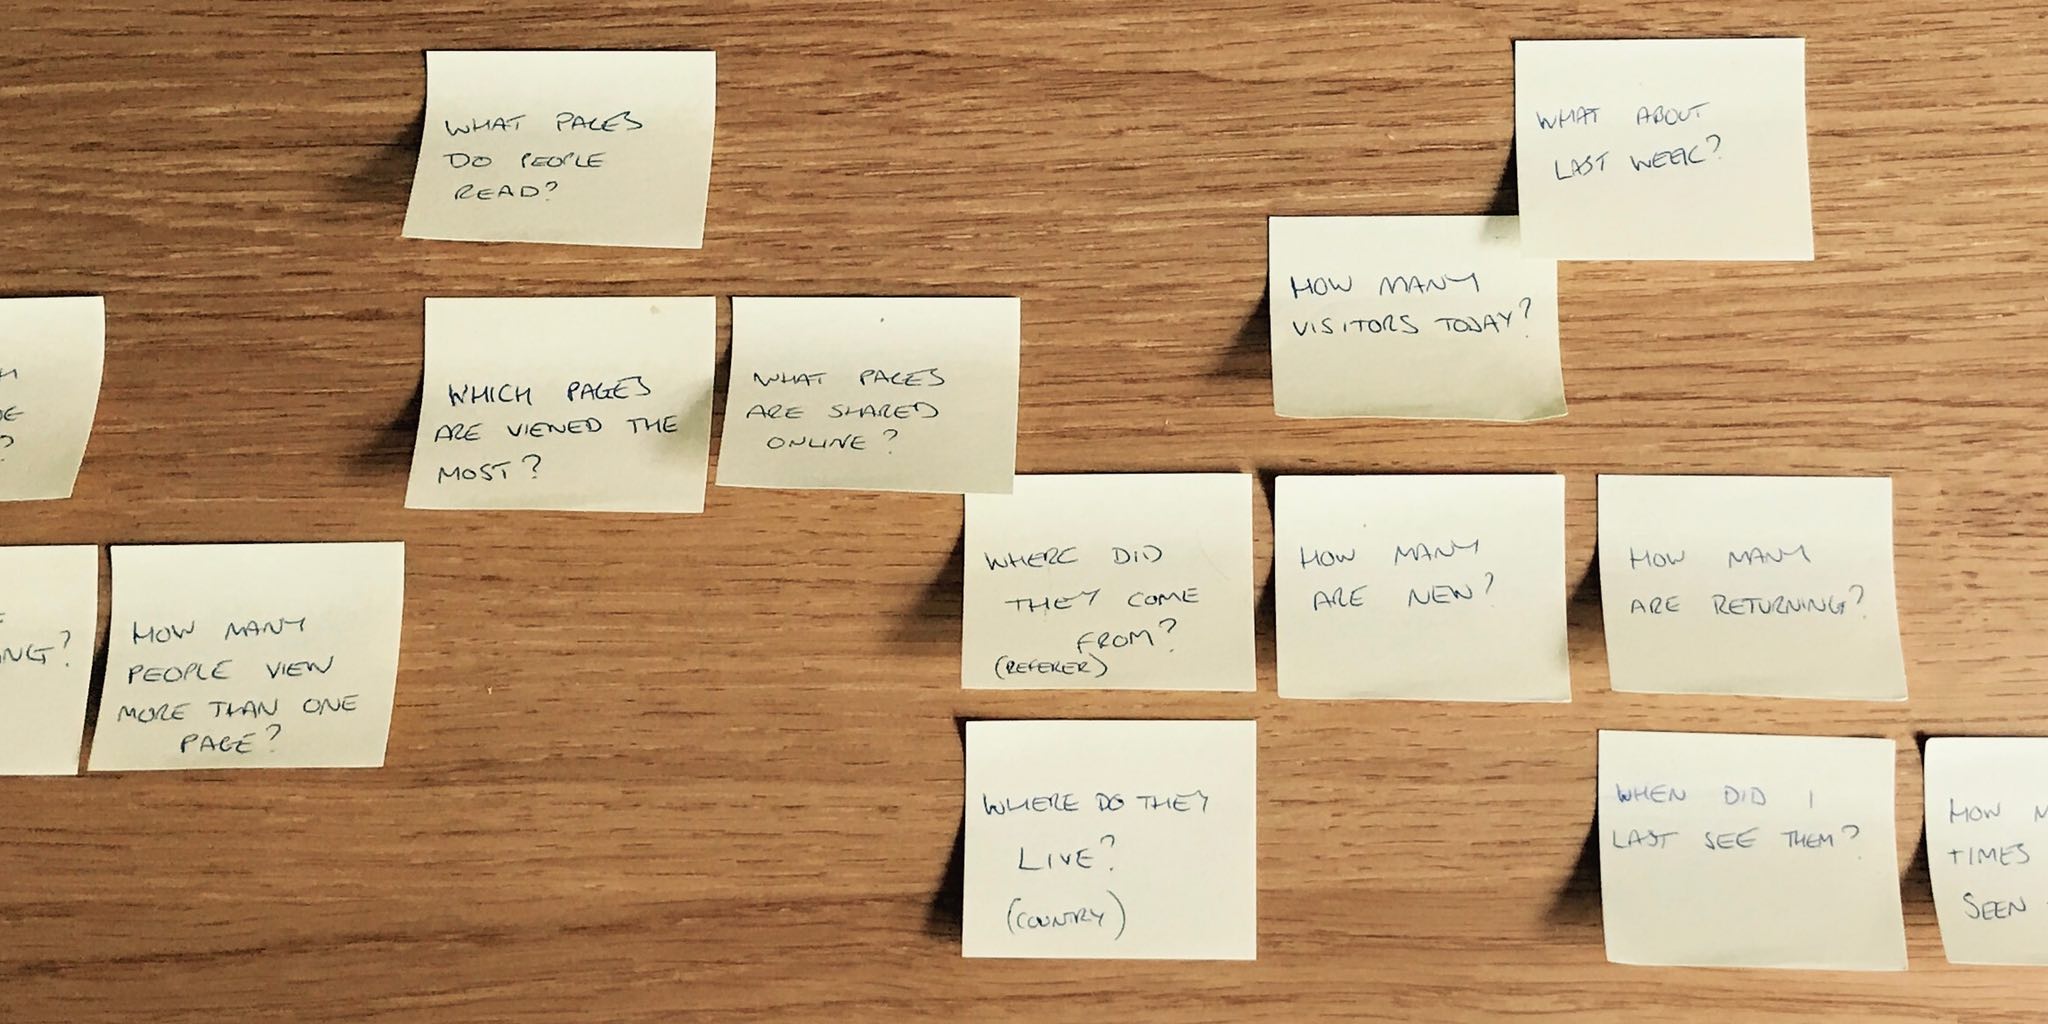 WHAT PAGES
DO PEOPLE
READ?
WHAT ABOUT
LAST WEEK?
HOW MANY
VISITORS TODAY?
WHICH PAGES
ARE VIEWED THE
MOST?
WHAT PAGES
ARE SHARED
ONLINE?
?
WHERE DID
THEY COME
FROM?
(REFERER)
HOW MANY
ARE NEW?
HOW MANY
ARE RETURNING?
HOW MANY
PEOPLE VIEW
MORE THAN ONE
PAGE?
WHERE DO THEY
LIVE?
(COUNTRY)
WHEN DID I
LAST SEE THEM?
HOW
TIMES
SEEN